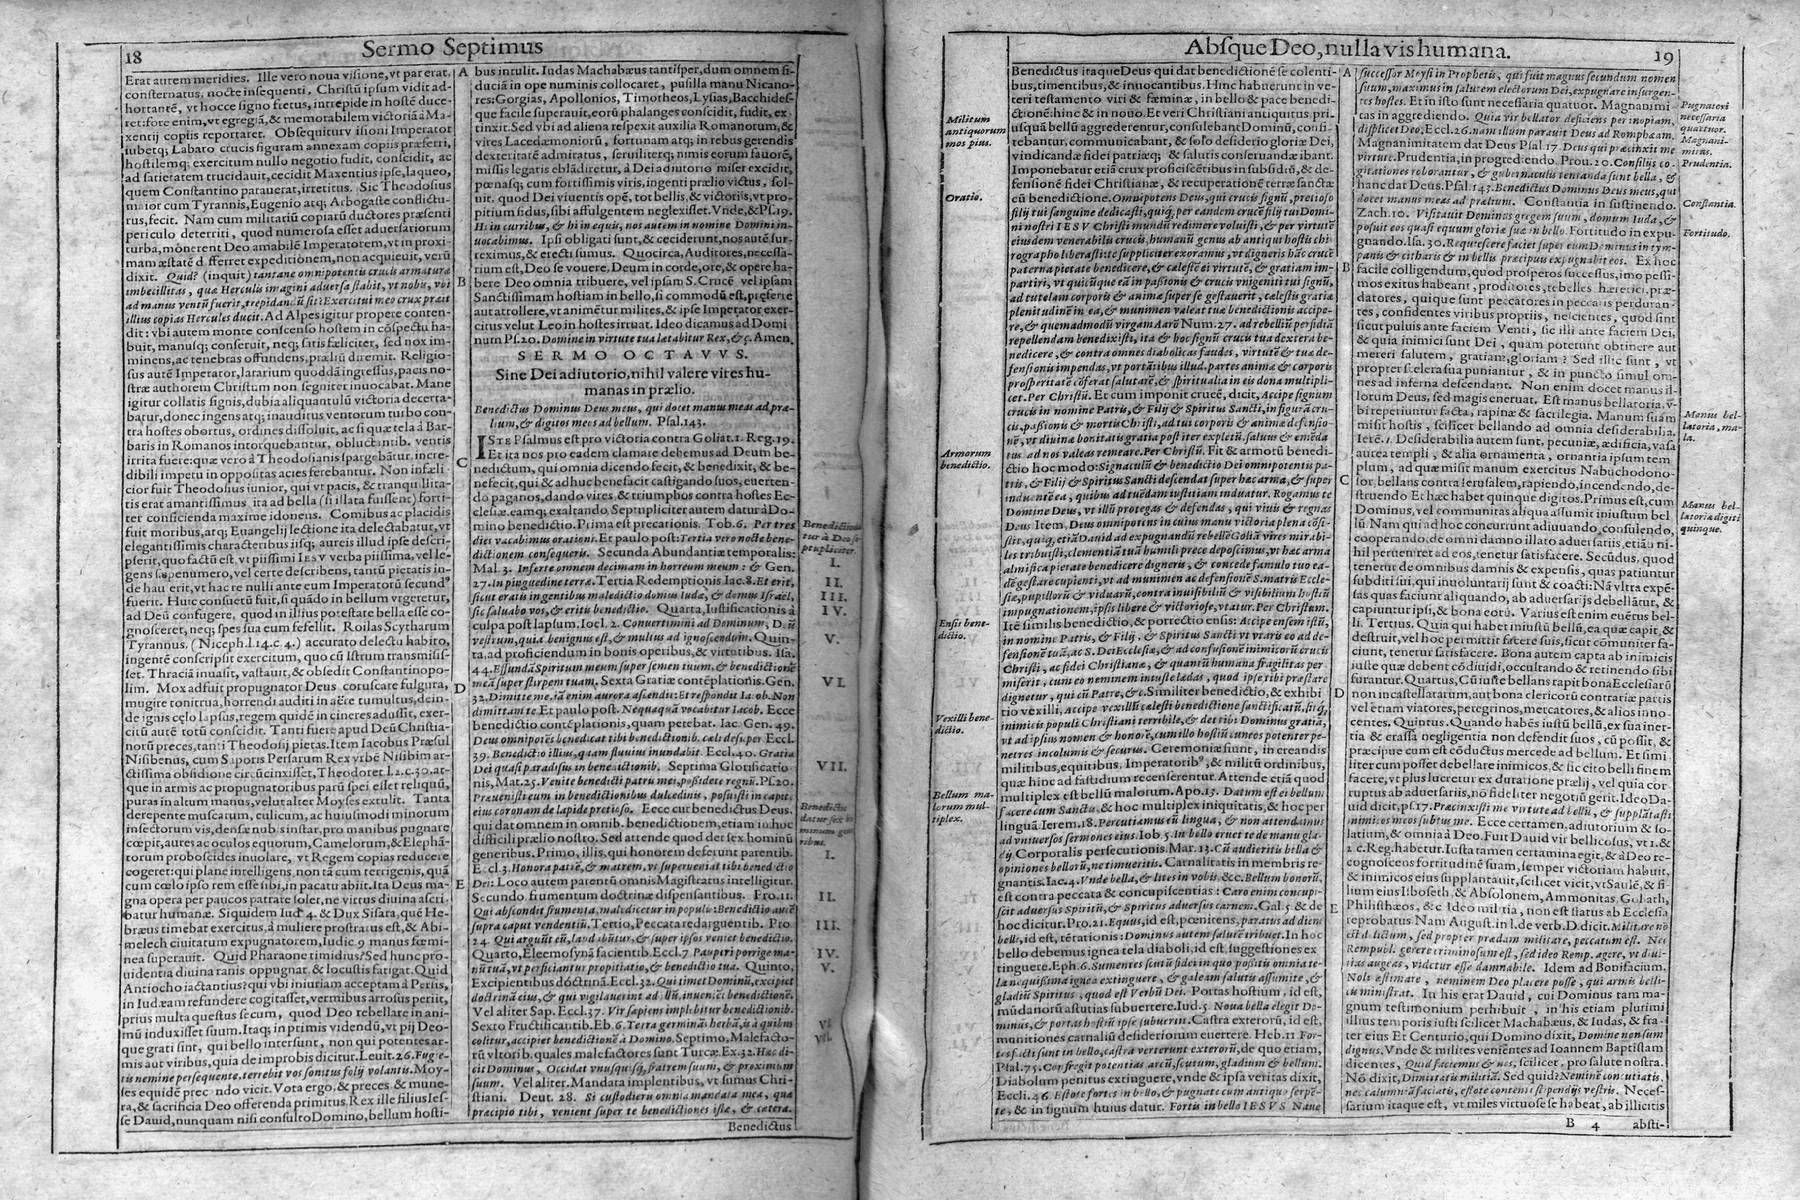 18
Sermo Septimus
Erat autem meridies. Ille vero noua visione, vt par erat,
consternatus, nocte insequenti, Christū ipsum vidit ad-
hortantē, vt hocce signo fretus, intrepide in hostē duce-
ret: fore enim, vt egregiā, & memorabilem victoriā à Ma-
xentij copiis reportaret. Obsequitur visioni Imperator
iubetq; Labaro crucis figuram annexam copiis præferri,
hostilemq; exercitum nullo negotio fudit, conscidit, ac
ad satietatem trucidauit, cecidit Maxentius ipse, laqueo,
quem Constantino parauerat, irretitus. Sic Theodosius
maior cum Tyrannis, Eugenio atq; Arbogaste conflictu-
rus, fecit. Nam cum militariū copiarū ductores præsenti
periculo deterriti, quod numerosa esset aduersariorum
turba, monerent Deo amabilē Imperatorem, vt in proxi-
mam æstatē differret expeditionem, non acquieuit, verū
dixit. Quid? (inquit) tantane omnipotentis crucis armaturæ
imbecillitas, quæ Herculis imagini aduersa stabit, vt nobis, vos
ad manus ventū fuerit, trepidancū sit? Exercitui meo crux præit
illius copias Hercules ducit. Ad Alpes igitur propere conten-
dit: vbi autem monte conscenso hostem in cōspectu ha-
buit, manusq; conseruit, neq; satis fæliciter, sed nox im-
minens, ac tenebras offundens, præliū diremit. Religio-
sus autē Imperator, lararium quoddā ingressus, pacis no-
stræ authorem Christum non segniter inuocabat. Mane
igitur collatis signis, dubia aliquantulū victoria decerta-
batur, donec ingens atq; inauditus ventorum turbo con-
tra hostes obortus, ordines dissoluit, ac si quæ tela à Bar-
baris in Romanos intorquebantur, obluctantib. ventis
irrita fuere: quæ vero à Theodosianis spargebātur, incre-
dibili impetu in oppositas acies ferebantur. Non infæli-
cior fuit Theodosius iunior, qui vt pacis, & tranquillita-
tis erat amantissimus ita ad bella (si illata fuissent) forti-
ter conficienda maxime idoneus. Comibus ac placidis
fuit moribus, atq; Euangelij lectione ita delectabatur, vt
elegantissimis characteribus iisq; aureis illud ipse descri-
pserit, quo factū est, vt piissimi IESV verba piissima, vel le-
gens sæpenumero, vel certe describens, tantū pietatis in-
de hauserit, vt hac re nulli ante eum Imperatorū secund⁹
fuerit. Huic consuetū fuit, si quādo in bellum vrgeretur,
ad Deū confugere, quod in illius potestate bella esse co-
gnosceret, neq; spes sua eum fefellit. Roilas Scytharum
Tyrannus, (Niceph. l. 14. c. 4.) accurato delectu habito,
ingentē conscripsit exercitum, quo cū Istrum transmisis-
set. Thraciā inuasit, vastauit, & obsedit Constantinopo-
lim. Mox adfuit propugnator Deus coruscare fulgura,
mugire tonitrua, horrendi auditi in aëre tumultus, dein-
de ignis cœlo lapsus, regem quidē in cineres adussit, exer-
citū autē totū conscidit. Tanti fuere apud Deū Christia-
norū preces, tanti Theodosij pietas. Item Iacobus Præsul
Nisibenus, cum Saporis Persarum Rex vrbē Nisibim ar-
ctissima obsidione circūcinxisset, Theodoret l. 2. c. 30. at-
que in armis ac propugnatoribus parū spei esset reliquū,
puras in altum manus, velut alter Moyses extulit. Tanta
derepente muscarum, culicum, ac huiusmodi minorum
insectorum vis, densæ nubis instar, pro manibus pugnare
cœpit, aures ac oculos equorum, Camelorum, & Elephā-
torum proboscides inuolare, vt Regem copias reducere
cogeret: qui plane intelligens, non tā cum terrigenis, quā
cum cœlo ipso rem esse sibi, in pacatu abiit. Ita Deus ma-
gna opera per paucos patrare solet, ne virtus diuina ascri-
batur humanæ. Siquidem Iud. 4. & Dux Sisara, quē He-
bræus timebat exercitus, à muliere prostratus est, & Abi-
melech ciuitatum expugnatorem, Iudic. 9 manus fœmi-
nea superauit. Quid Pharaone timidius? Sed hunc pro-
uidentia diuina ranis oppugnat & locustis fatigat. Quid
Antiocho iactantius? qui vbi iniuriam acceptam à Persis,
in Iudæam refundere cogitasset, vermibus arrosus periit,
prius multa questus secum, quod Deo rebellare in ani-
mū induxisset suum. Itaq; in primis videndū, vt pij Deo-
que grati sint, qui bello intersunt, non qui potentes ar-
mis aut viribus, quia de improbis dicitur. Leuit. 26. Fugie-
tis nemine persequente, terrebit vos sonitus folij volantis. Moy-
ses equidē precando vicit. Vota ergo, & preces & mune-
ra, & sacrificia Deo offerenda primitus. Rex ille filius Ies-
se Dauid, nunquam nisi consulto Domino, bellum hosti-
A
B
C
D
E
bus intulit. Iudas Machabæus tantisper, dum omnem fi-
duciā in ope numinis collocaret, pusilla manu Nicano-
res: Gorgias, Apollonios, Timotheos, Lysias, Bacchides-
que facile superauit, eorū phalanges conscidit, fudit, ex-
tinxit. Sed vbi ad aliena respexit auxilia Romanorum, &
vires Lacedæmoniorū, fortunam atq; in rebus gerendis
dexteritatē admiratus, seruiliterq; nimis eorum fauorē,
missis legatis eblādiretur, à Dei adiutorio miser excidit,
pœnasq; cum fortissimis viris, ingenti prælio victus, sol-
uit. quod Dei viuentis opē, tot bellis, & victoriis, vt pro-
pitium sidus, sibi affulgentem neglexisset. Vnde, & Ps. 19.
Hi in curribus, & hi in equis, nos autem in nomine Domini in-
uocabimus. Ipsi obligati sunt, & ceciderunt, nos autē sur-
reximus, & erecti sumus. Quocirca, Auditores, necessa-
rium est, Deo se vouere. Deum in corde, ore, & opere ha-
bere Deo omnia tribuere, vel ipsam S. Crucē vel ipsam
Sanctissimam hostiam in bello, si commodū est, præferre
aut attollere, vt animētur milites, & ipse Imperator exer-
citus velut Leo in hostes irruat. Ideo dicamus ad Domi
num Ps. 20. Domine in virtute tua lætabitur Rex, &c. Amen.
SERMO OCTAVVS.
Sine Dei adiutorio, nihil valere vires hu-
manas in prælio.
Benedictus Dominus Deus meus, qui docet manus meas ad præ-
lium, & digitos meos ad bellum. Psal. 143.
ISTE Psalmus est pro victoria contra Goliat. 1. Reg. 19.
Et ita nos pro eadem clamare debemus ad Deum be-
nedictum, qui omnia dicendo fecit, & benedixit, & be-
nefecit, qui & adhuc benefacit castigando suos, euerten-
do paganos, dando vires & triumphos contra hostes Ec-
clesiæ, eamq; exaltando. Septupliciter autem datur à Do-
mino benedictio. Prima est precationis. Tob. 6. Per tres
dies vacabimus orationi. Et paulo post: Tertia vero nocte bene-
dictionem consequeris. Secunda Abundantiæ temporalis:
Mal. 3. Inferte omnem decimam in horreum meum: & Gen.
27. In pinguedine terræ. Tertia Redemptionis Iac. 8. Et erit,
sicut eratis in gentibus maledictio domus Iudæ, & domus Israël,
sic saluabo vos, & eritis benedictio. Quarta, Iustificationis à
culpa post lapsum. Ioel. 2. Conuertimini ad Dominum, D. ū
vestrum, quia benignus est, & multus ad ignoscendum. Quin-
ta, ad proficiendum in bonis operibus, & virtutibus. Isa.
44. Effundā Spiritum meum super semen tuum, & benedictionē
meā super stirpem tuam. Sexta Gratiæ contēplationis. Gen.
32. Dimitte me, iā enim aurora ascendit: Et respondit Iacob. Non
dimittam te Et paulo post. Nequaquā vocabitur Iacob. Ecce
benedictio contēplationis, quam petebat. Iac. Gen. 49.
Deus omnipotēs benedicat tibi benedictionib. cæli desuper Eccl.
39. Benedictio illius, quasi fluuius inundabit. Eccl. 40. Gratia
Dei quasi paradisus in benedictionib. Septima Glorificatio
nis, Mat. 25. Venite benedicti patris mei, possidete regnū. Ps. 20.
Præuenisti eum in benedictionibus dulcedinis, posuisti in capite
eius coronam de lapide pretioso. Ecce cur benedictus Deus.
qui dat omnem in omnib. benedictionem, etiam in hoc
difficili prælio nostro. Sed attende quod det sex hominū
generibus. Primo, illis, qui honorem deferunt parentib.
Eccl. 3. Honora patrē, & matrem, vt superueniat tibi benedictio
Dei: Loco autem parentū omnis Magistratus intelligitur.
Secundo frumentum doctrinæ dispensantibus. Pro. 11.
Qui abscondit frumenta, maledicetur in populis: Benedictio autē
supra caput vendentiū. Tertio, Peccata redarguentib. Pro
24. Qui arguūt eū, laudabūtur, & super ipsos veniet benedictio.
Quarto, Eleemosynā facientib. Eccl. 7 Pauperi porrige ma-
nū tuā, vt perficiantur propitiatio, & benedictio tua. Quinto,
Excipientibus doctrinā. Eccl. 32. Qui timet Dominū, excipiet
doctrinā eius, & qui vigilauerint ad illū, inuenient benedictionē.
Vel aliter Sap. Eccl. 37. Vir sapiens implebitur benedictionib.
Sexto Fructificantib. Eb. 6. Terra germinās herbā, iis à quibus
colitur, accipiet benedictionē à Domino. Septimo, Malefacto-
rū vltorib. quales malefactores sunt Turcæ. Ex. 32. Hæc di-
cit Dominus, Occidat vnusquisq; fratrem suum, & proximum
suum. Vel aliter. Mandata implentibus, vt sumus Chri-
stiani. Deut. 28. Si custodieris omnia mandata mea, quæ
præcipio tibi, venient super te benedictiones istæ, & cætera.
Benedictus
I.
II.
III.
IV.
V.
VI.
VII.
I.
II.
III.
IV.
V.
Absque Deo, nulla vis humana.
19
Militum
antiquorum
mos pius.
Oratio.
Armorum
benedictio.
Ensis bene-
dictio.
Vexilli bene-
dictio.
Bellum ma-
lorum mul-
tiplex.
Benedictus itaque Deus qui dat benedictionē se colenti-
bus, timentibus, & inuocantibus. Hinc habuerunt in ve-
teri testamento viri & fæminæ, in bello & pace benedi-
ctionē: hinc & in nouo. Et veri Christiani antiquitus pri-
usquā bellū aggrederentur, consulebant Dominū, confi-
tebantur, communicabant, & solo desiderio gloriæ Dei,
vindicandæ fidei patriæq; & salutis conseruandæ ibant.
Imponebatur etiam crux proficiscētibus in subsidiū, & de-
fensionē fidei Christianæ, & recuperationē terræ sanctæ
cū benedictione. Omnipotens Deus, qui crucis signū, pretioso
filij tui sanguine dedicasti, quiq; per eandem crucē filij tui Domi-
ni nostri IESV Christi mundū redimere voluisti, & per virtutē
eiusdem venerabilis crucis, humanū genus ab antiqui hostis chi-
rographo liberasti: te suppliciter exoramus, vt digneris hāc crucē
paterna pietate benedicere, & cælestē ei virtutē, & gratiam im-
partiri, vt quicūque eā in passionis & crucis vnigeniti tui signū,
ad tutelam corporis & animæ super se gestauerit, cælestis gratiæ
plenitudinē in ea, & munimen valeat tuæ benedictionis accipe-
re, & quemadmodū virgam Aarō Num. 27. ad rebelliū perfidiā
repellendam benedixisti, ita & hoc signū crucis tua dextera be-
nedicere, & contra omnes diabolicas fraudes, virtutē & tuæ de-
fensionis impendas, vt portātibus illud. partes animæ & corporis
prosperitatē cōferat salutarē, & spiritualia in eis dona multipli-
cet. Per Christū. Et cum imponit crucē, dicit, Accipe signum
crucis in nomine Patris, & Filij & Spiritus Sancti, in figurā cru-
cis, passionis & mortis Christi, ad tui corporis & animæ defensio-
nē, vt diuinæ bonitatis gratia post iter expletū, saluus & emēda
tus ad nos valeas remeare. Per Christū. Fit & armotū benedi-
ctio hoc modo: Signaculū & benedictio Dei omnipotentis pa-
tris, & Filij & Spiritus Sancti descendat super hæc arma, & super
induentē ea, quibus ad tuēdam iustitiam induatur. Rogamus te
Deus, vt illū protegas & defendas, qui viuis & regnas
Deus Item, Deus omnipotens in cuius manu victoria plena cōsi-
stit, quiq; etiā Dauid ad expugnandū rebellē Goliā vires mirabi-
les tribuisti, clementiā tuā humili prece deposcimus, vt hæc arma
almifica pietate benedicere digneris, & concede famulo tuo ea-
dē gestare cupienti, vt ad munimen ac defensionē S. matris Eccle-
siæ, pupillorū & viduarū, contra inuisibiliū & visibilium hostiū
impugnationem, ipsis libere & victoriose, vtatur. Per Christum.
Itē similis benedictio, & porrectio ensis: Accipe ensem istū,
in nomine Patris, & Filij, & Spiritus Sancti vt vtaris eo ad de-
fensionē tuā, ac S. Dei Ecclesiæ, & ad confusionē inimicorū crucis
Christi, ac fidei Christianæ, & quantū humana fragilitas per
miserit, cum eo neminem iniuste lædas, quod ipse tibi præstare
dignetur, qui cū Patre, &c. Similiter benedictio, & exhibi
tio vexilli, Accipe vexillū cælesti benedictione sanctificatū, sitq;
inimicis populi Christiani terribile, & det tibi Dominus gratiā,
vt ad ipsius nomen & honorē, cum illo hostiū cuneos potenter pe-
netres incolumis & securus. Ceremoniæ fiunt, in creandis
militibus, equitibus, Imperatorib⁹, & militū ordinibus,
quæ hinc ad fastidium recenserentur. Attende etiā quod
multiplex est bellū malorum. Apo. 13. Datum est ei bellum
facere cum Sanctis, & hoc multiplex iniquitatis, & hoc per
linguā Ierem. 18. Percutiamus eū lingua, & non attendamus
ad vniuersos sermones eius. Iob. 5. In bello eruet te de manu gla-
dij. Corporalis persecutionis. Mar. 13. Cū audieritis bella &
opiniones bellorū, ne timueritis. Carnalitatis in membris re-
gnantis. Iac. 4. Vnde bella, & lites in vobis, &c. Bellum bonorū,
est contra peccata & concupiscentias: Caro enim concupi-
scit aduersus Spiritū, & Spiritus aduersus carnem. Gal. 5 & de
hoc dicitur. Pro. 21. Equus, id est, pœnitens, paratus ad diem
belli, id est, tētationis: Dominus autem salutē tribuet. In hoc
bello debemus ignea tela diaboli, id est, suggestiones ex
tinguere. Eph. 6. Sumentes scutū fidei in quo possitis omnia te-
la nequissimi ignea extinguere, & galeam salutis assumite, &
gladiū Spiritus, quod est Verbū Dei. Portas hostium, id est,
mūdanorū astutias subuertere. Iud. 5. Noua bella elegit Do-
minus, & portas hostiū ipse subuertit. Castra exterorū, id est,
munitiones carnaliū desideriorum euertere. Heb. 11 For-
tes facti sunt in bello, castra verterunt exterorū, de quo etiam,
Psal. 75. Confregit potentias arcū, scutum, gladium & bellum.
Diabolum penitus extinguere, vnde & ipsa veritas dixit,
Eccli. 46 Estote fortes in bello, & pugnate cum antiquo serpē-
te, & in signum huius datur. Fortis in bello IESVS Naue
A
B
C
D
E
successor Moysi in Prophetis, qui fuit magnus secundum nomen
suum, maximus in salutem electorum Dei, expugnare insurgen-
tes hostes. Et in isto sunt necessaria quatuor. Magnanimi-
tas in aggrediendo. Quia vir bellator deficiens per inopiam,
displicet Deo. Eccl. 26. nam illum parauit Deus ad Romphæam.
Magnanimitatem dat Deus Psal. 17 Deus qui præcinxit me
virtute. Prudentia, in progrediendo. Prou. 20. Consiliis co-
gitationes roborantur, & gubernaculis tractanda sunt bella, &
hanc dat Deus. Psal. 143. Benedictus Dominus Deus meus, qui
docet manus meas ad prælium. Constantia in sustinendo.
Zach. 10. Visitauit Dominus gregem suum, domum Iuda, &
posuit eos quasi equum gloriæ suæ in bello. Fortitudo in expu-
gnando. Isa. 30. Requiescere faciet super eum Dominus in tym-
panis & citharis & in bellis præcipuis expugnabit eos. Ex hoc
facile colligendum, quod prosperos successus, imo pessi-
mos exitus habeant, proditores, rebelles hæretici, præ-
datores, quique sunt peccatores in peccatis perduran-
tes, confidentes viribus propriis, nescientes, quod sint
sicut puluis ante faciem Venti, sic illi ante faciem Dei,
& quia inimici sunt Dei, quam poterunt obtinere aut
mereri salutem, gratiam, gloriam? Sed illic sunt, vt
propter scelera sua puniantur, & in puncto simul om-
nes ad inferna descendant. Non enim docet manus il-
lorum Deus, sed magis eneruat. Est manus bellatoria, v-
bi reperiuntur facta, rapinæ & sacrilegia. Manum suam
misit hostis, scilicet bellando ad omnia desiderabilia.
Ierē. 1. Desiderabilia autem sunt, pecuniæ, ædificia, vasa
aurea templi, & alia ornamenta, ornantia ipsum tem-
plum, ad quæ misit manum exercitus Nabuchodono-
sor, bellans contra Ierusalem, rapiendo, incendendo, de-
struendo. Et hæc habet quinque digitos. Primus est, cum
Dominus, vel communitas aliqua assumit iniustum bel-
lū Nam qui ad hoc concurrunt adiuuando, consulendo,
cooperando, de omni damno illato aduersariis, etiā si ni-
hil peruenit ad eos, tenetur satisfacere. Secūdus, quod
tenetur de omnibus damnis & expensis, quas patiuntur
subditi sui, qui inuoluntarij sunt & coacti: Nā vltra expē-
sas quas faciunt aliquando, ab aduersarijs debellātur, &
capiuntur ipsi, & bona eorū. Varius est enim euētus bel-
li. Tertius. Quia qui habet iniustū bellū, ea quæ capit, &
destruit, vel hoc permittit facere suis, sicut cōmuniter fa-
ciunt, tenetur satisfacere. Bona autem capta ab inimicis
iuste quæ debent cōdiuidi, occultando & retinendo sibi
furantur. Quartus, Cū iuste bellans rapit bona Ecclesiarū
non incastellatarum, aut bona clericorū contrariæ partis
vel etiam viatores, peregrinos, mercatores, & alios inno-
centes. Quintus. Quando habēs iustū bellū, ex sua iner-
tia & crassa negligentia non defendit suos, cū possit, &
præcipue cum est cōductus mercede ad bellum. Et simi
liter cum posset debellare inimicos, & sic cito belli finem
facere, vt plus lucretur ex duratione prælij, vel quia cor-
ruptus ab aduersariis, nō fideliter negotiū gerit. Ideo Da-
uid dicit, ps. 17. Præcinxisti me virtute ad bellū, & supplātasti
inimicos meos subtus me. Ecce certamen, adiutorium & so-
latium, & omnia à Deo. Fuit Dauid vir bellicosus, vt 1. &
2 c. Reg. habetur. Iusta tamen certamina egit, & à Deo re-
cognoscens fortitudinē suam, semper victoriam habuit,
& inimicos eius supplantauit, scilicet vicit, vt Saulē, & fi-
lium eius Isboseth, & Absolonem, Ammonitas. Goliath,
Philisthæos, &c Ideo militia, non est status ab Ecclesia
reprobatus Nam August. in l. de verb. D. dicit. Militare nō
est delictum, sed propter prædam militare, peccatum est. Nec
Rempubl. gerere criminosum est, sed ideo Remp. agere, vt diui-
tias augeas, videtur esse damnabile. Idem ad Bonifacium.
Noli existimare, neminem Deo placere posse, qui armis belli-
cis ministrat. In his erat Dauid, cui Dominus tam ma-
gnum testimonium perhibuit, in his etiam plurimi
illius temporis iusti scilicet Machabæus, & Iudas, & fra-
ter eius Et Centurio, qui Domino dixit, Domine non sum
dignus. Vnde & milites veniētes ad Ioannem Baptistam
dicentes, Quid faciemus & nos, scilicet, pro salute nostra.
Nō dixit, Dimittatis militiā. Sed quid? Neminē concutiatis,
nec calumniā faciatis, estote contenti stipendijs vestris. Neces-
sarium itaque est, vt miles virtuose se habeat, ab illicitis
B 4
absti-
Pugnatori
necessaria
quatuor.
Magnani-
mitas.
Prudentia.
Constantia.
Fortitudo.
Manus bel-
latoria, ma-
la.
Manus bel-
latoriæ digiti
quinque.